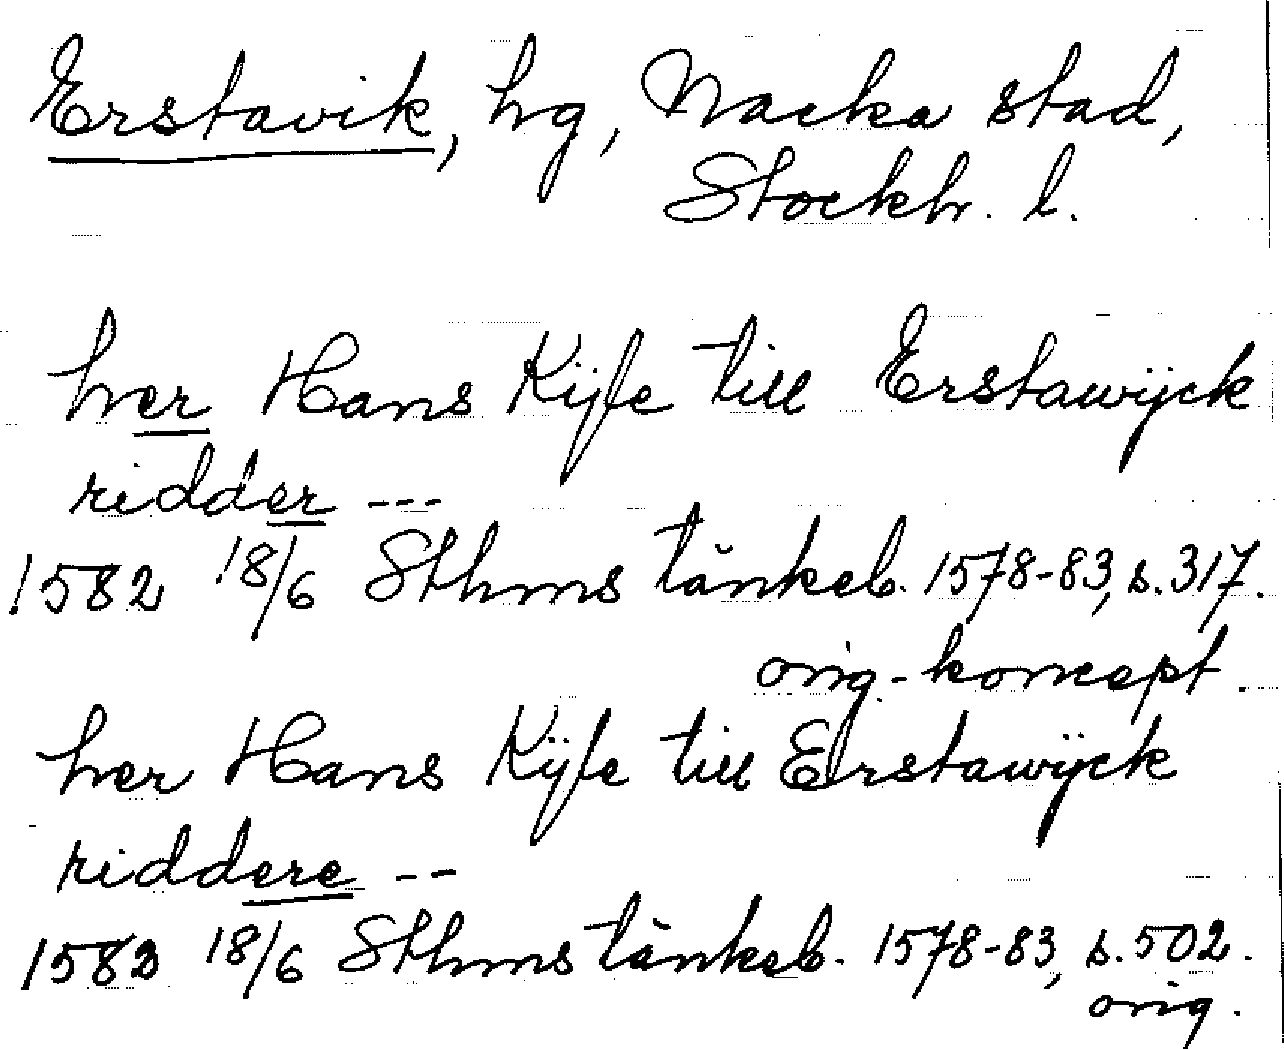 Erstavik, hg, Nacka stad,
Stockh. l.
her Hans Kijle till Erstawijck
ridder ---
1582 18/6 Sthms tänkeb. 1578-83, s. 317.
orig.-koncept.
her Hans Kijle till Erstawijck
riddere --
1583 18/6 Sthms tänkeb. 1578-83, s. 502.
orig.